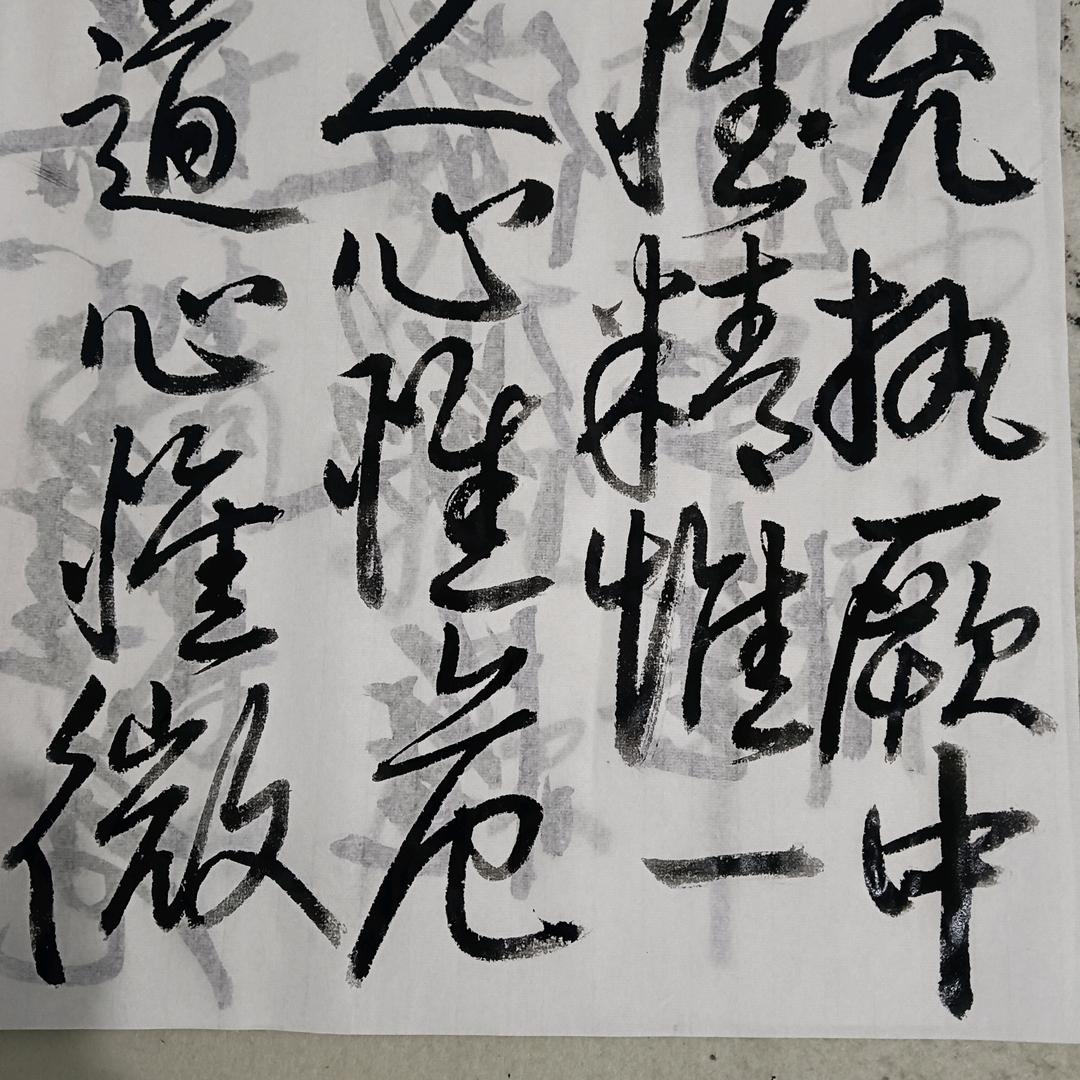 允执厥中
惟精惟一
人心惟危
道心惟微